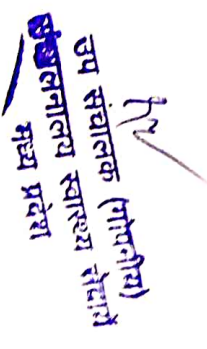 उप संचालक (गोपनीय)
संचालनालय स्वास्थ्य सेवायें
मध्य प्रदेश